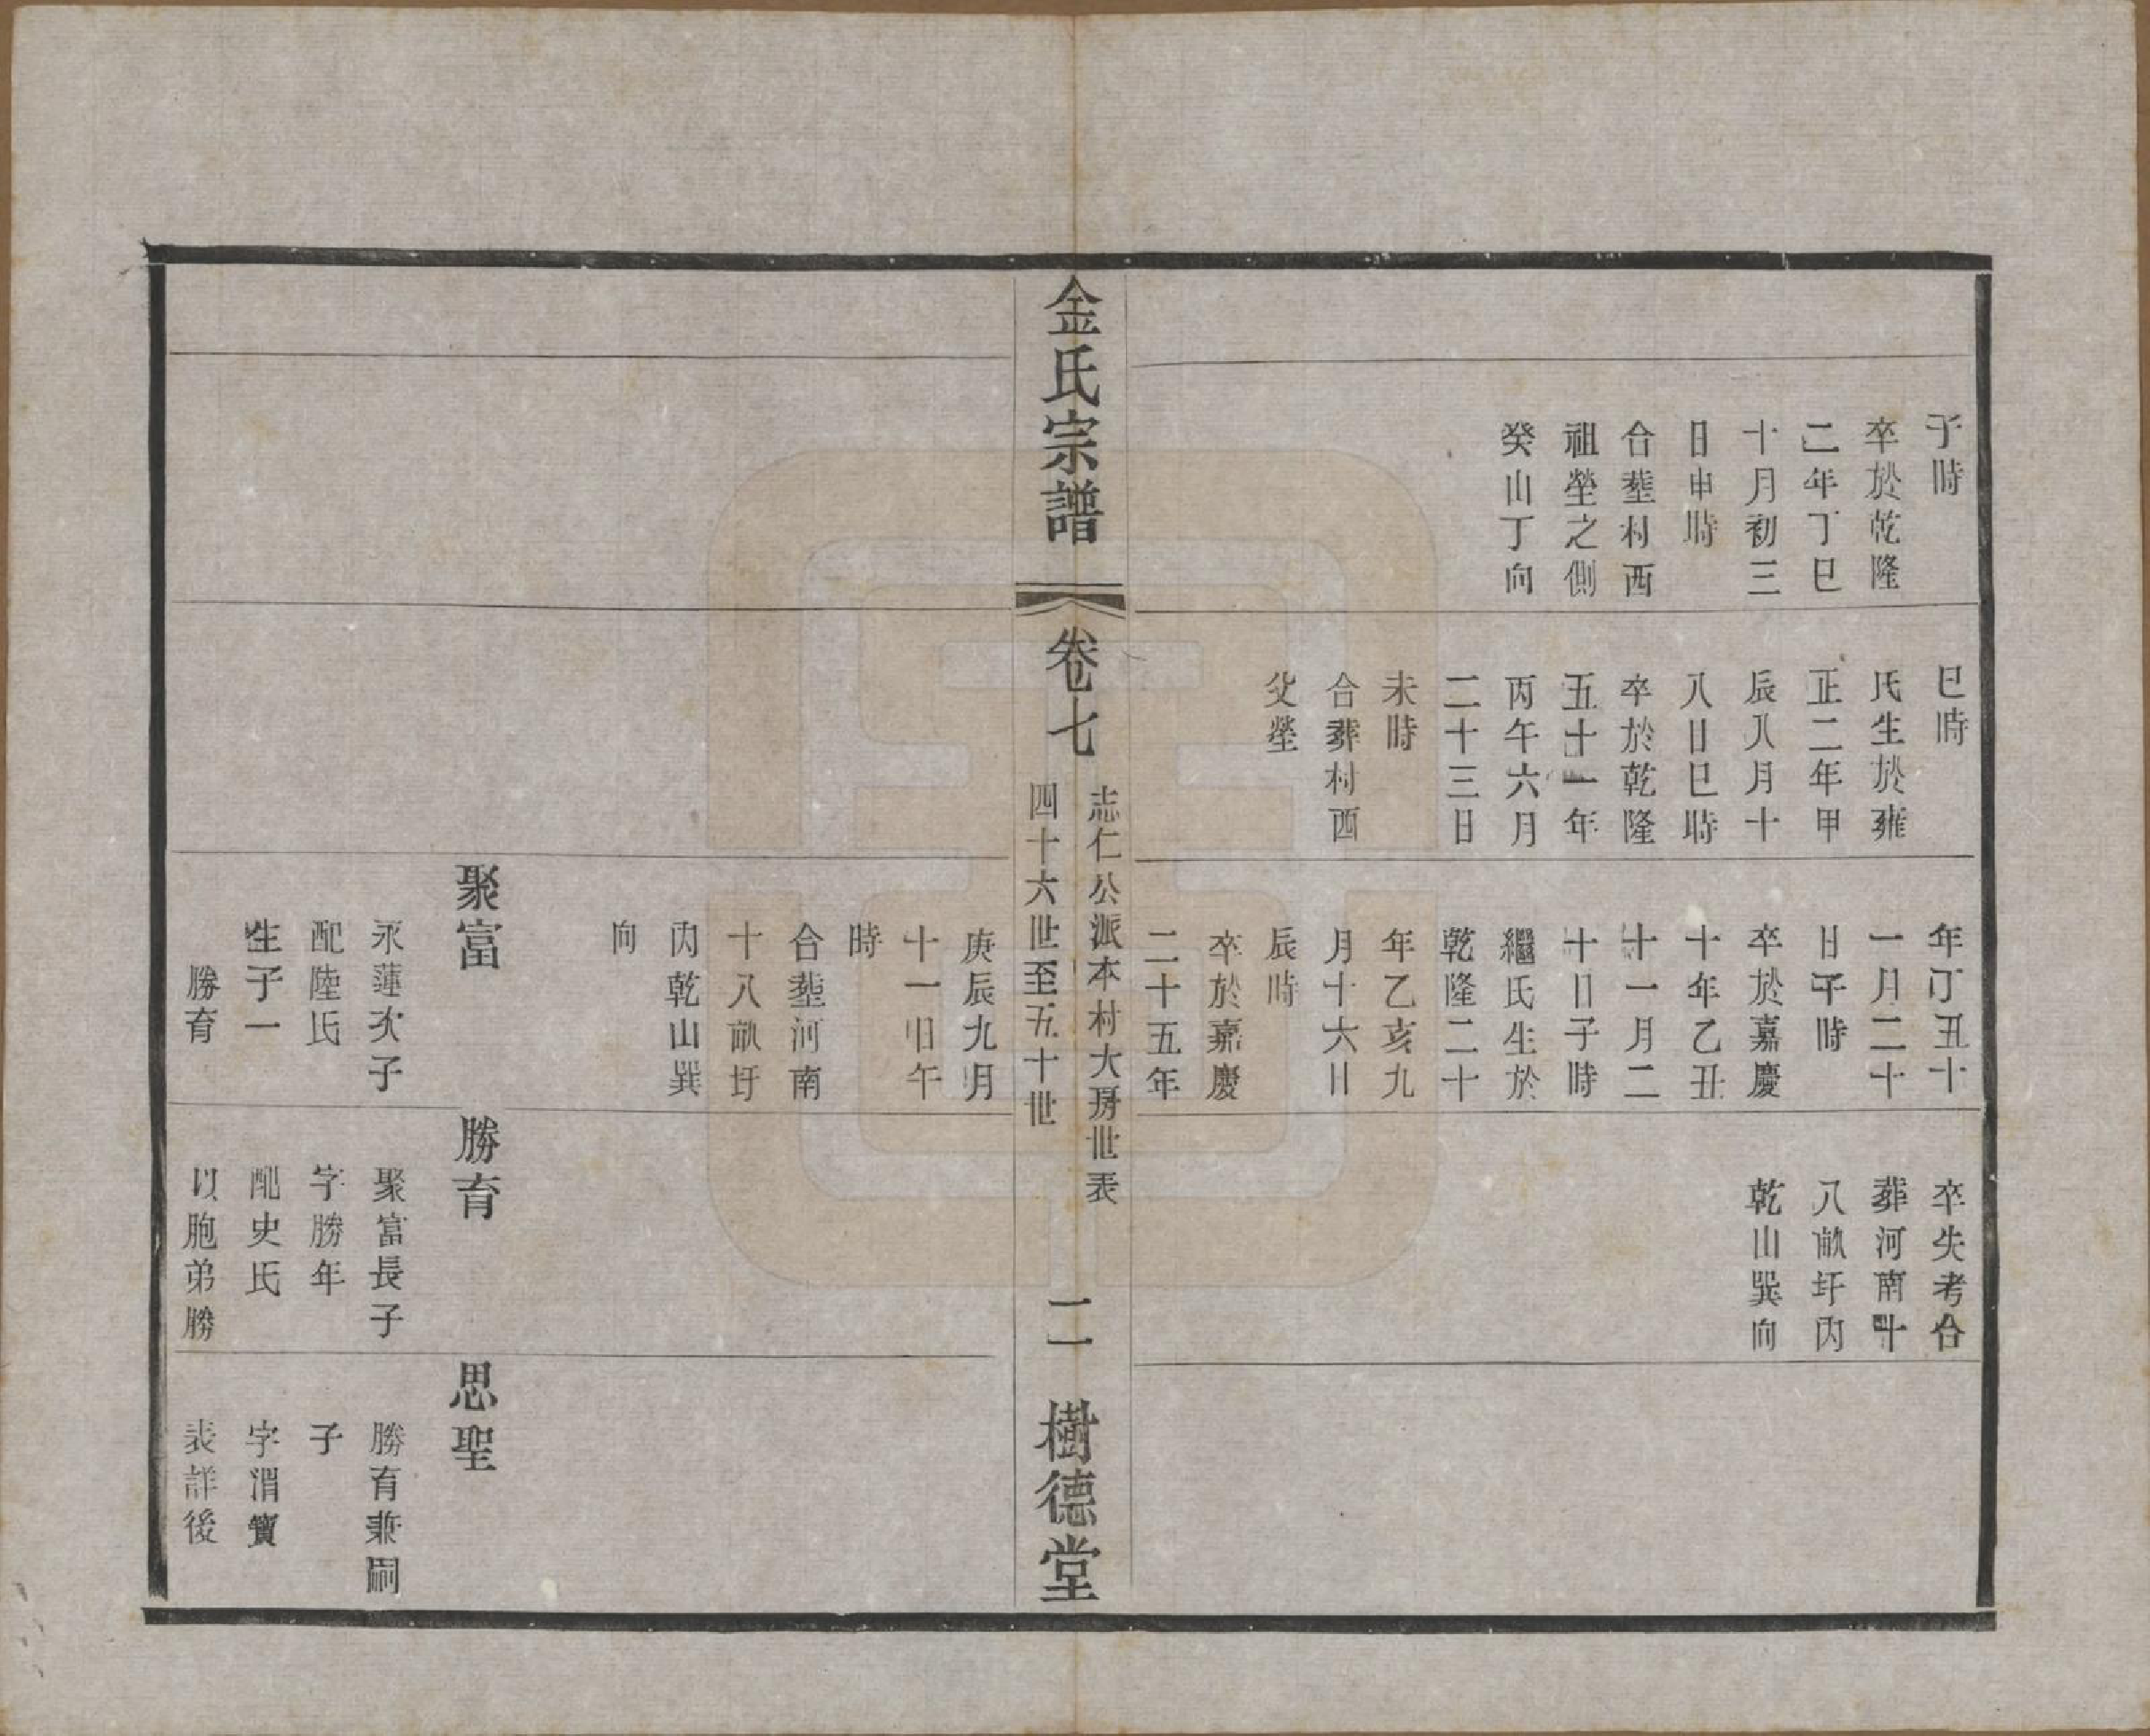 子時
卒於乾隆
二年丁巳
十月初三
日申時
合塟村西
祖塋之側
癸山丁向
巳時
氏生於雍
正二年甲
辰八月十
八日巳時
卒於乾隆
五十一年
丙午六月
二十三日
未時
合葬村西
父塋
年丁丑十
一月二十
日子時
卒於嘉慶
十年乙丑
十一月二
十日子時
繼氏生於
乾隆二十
年乙亥九
月十六日
辰時
卒於嘉慶
二十五年
卒失考合
葬河南十
八畝圩內
乾山巽向
金氏宗譜
卷七
志仁公派本村大房世表
四十六世至五十世
二
樹德堂
庚辰九月
十一日午
時
合塟河南
十八畝圩
內乾山巽
向
聚富
永蓮次子
配陸氏
生子一
勝育
勝育
聚富長子
字勝年
配史氏
以胞弟勝
思聖
勝育兼嗣
子
字渭寶
表詳後